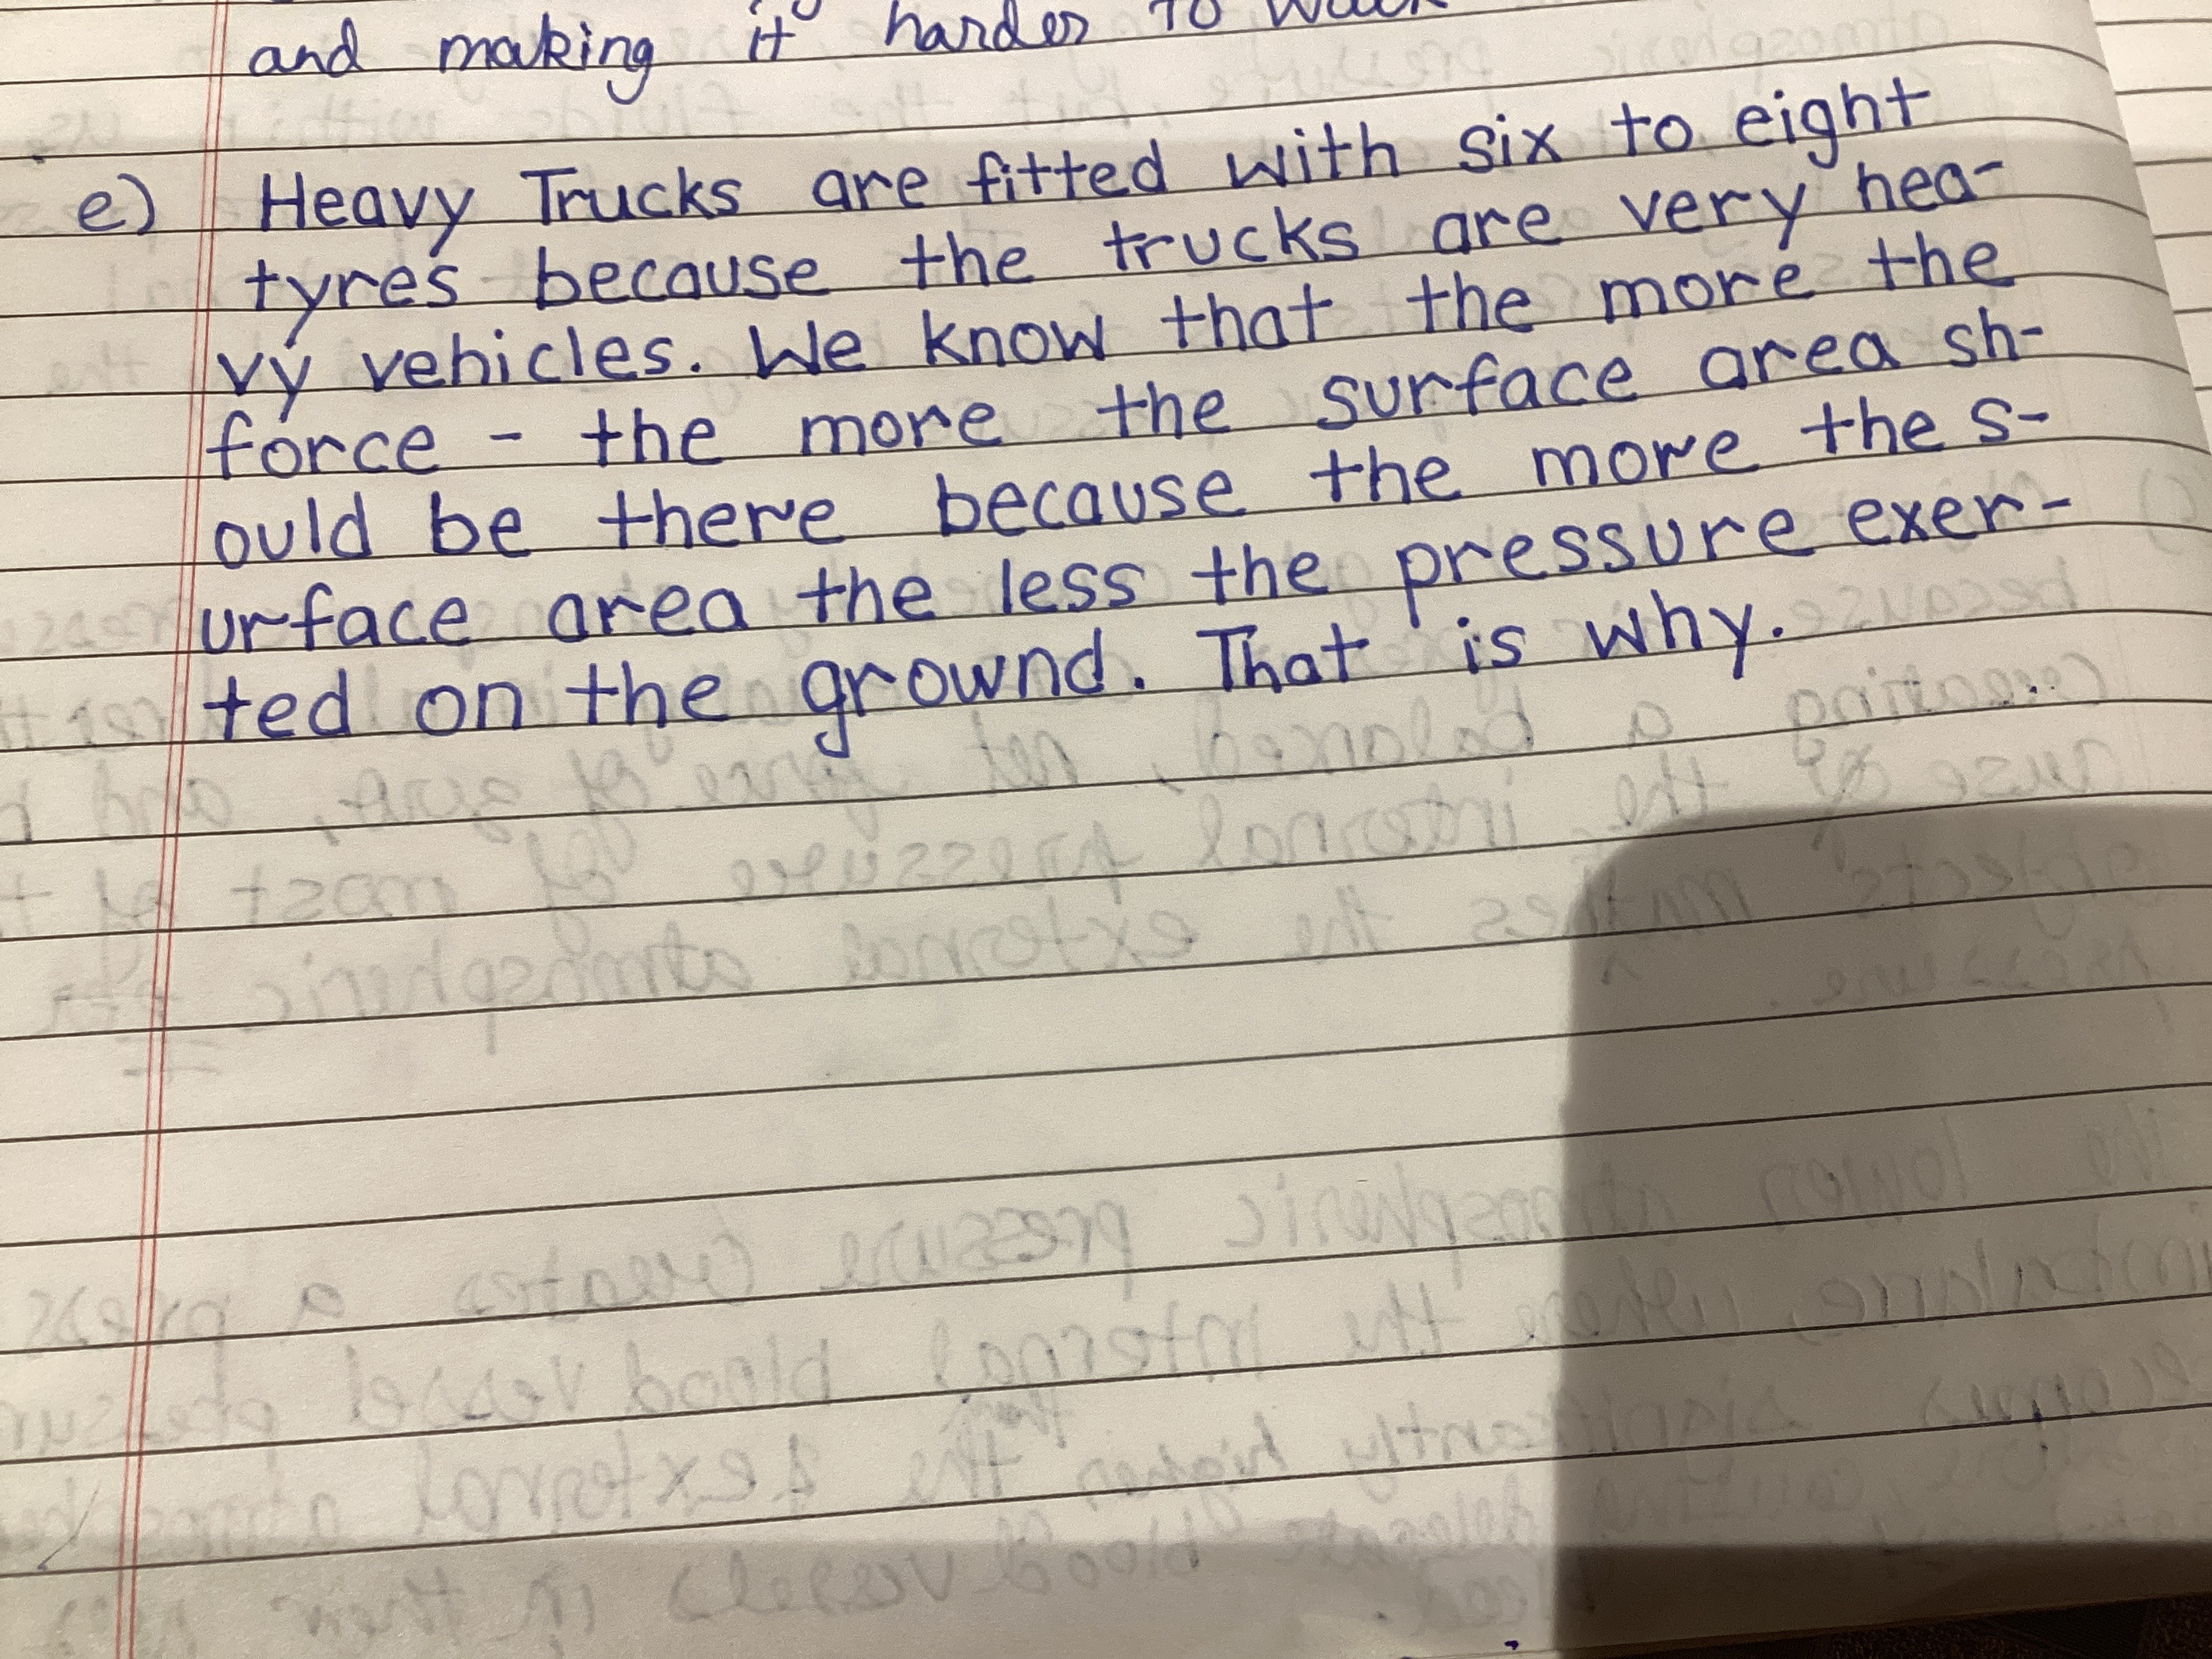 and making it harder to walk
e) Heavy Trucks are fitted with six to eight
tyres because the trucks are very hea-
vy vehicles. We know that the more the
force - the more the surface area sh-
ould be there because the more the s-
urface area the less the pressure exer-
ted on the grownd. That is why.